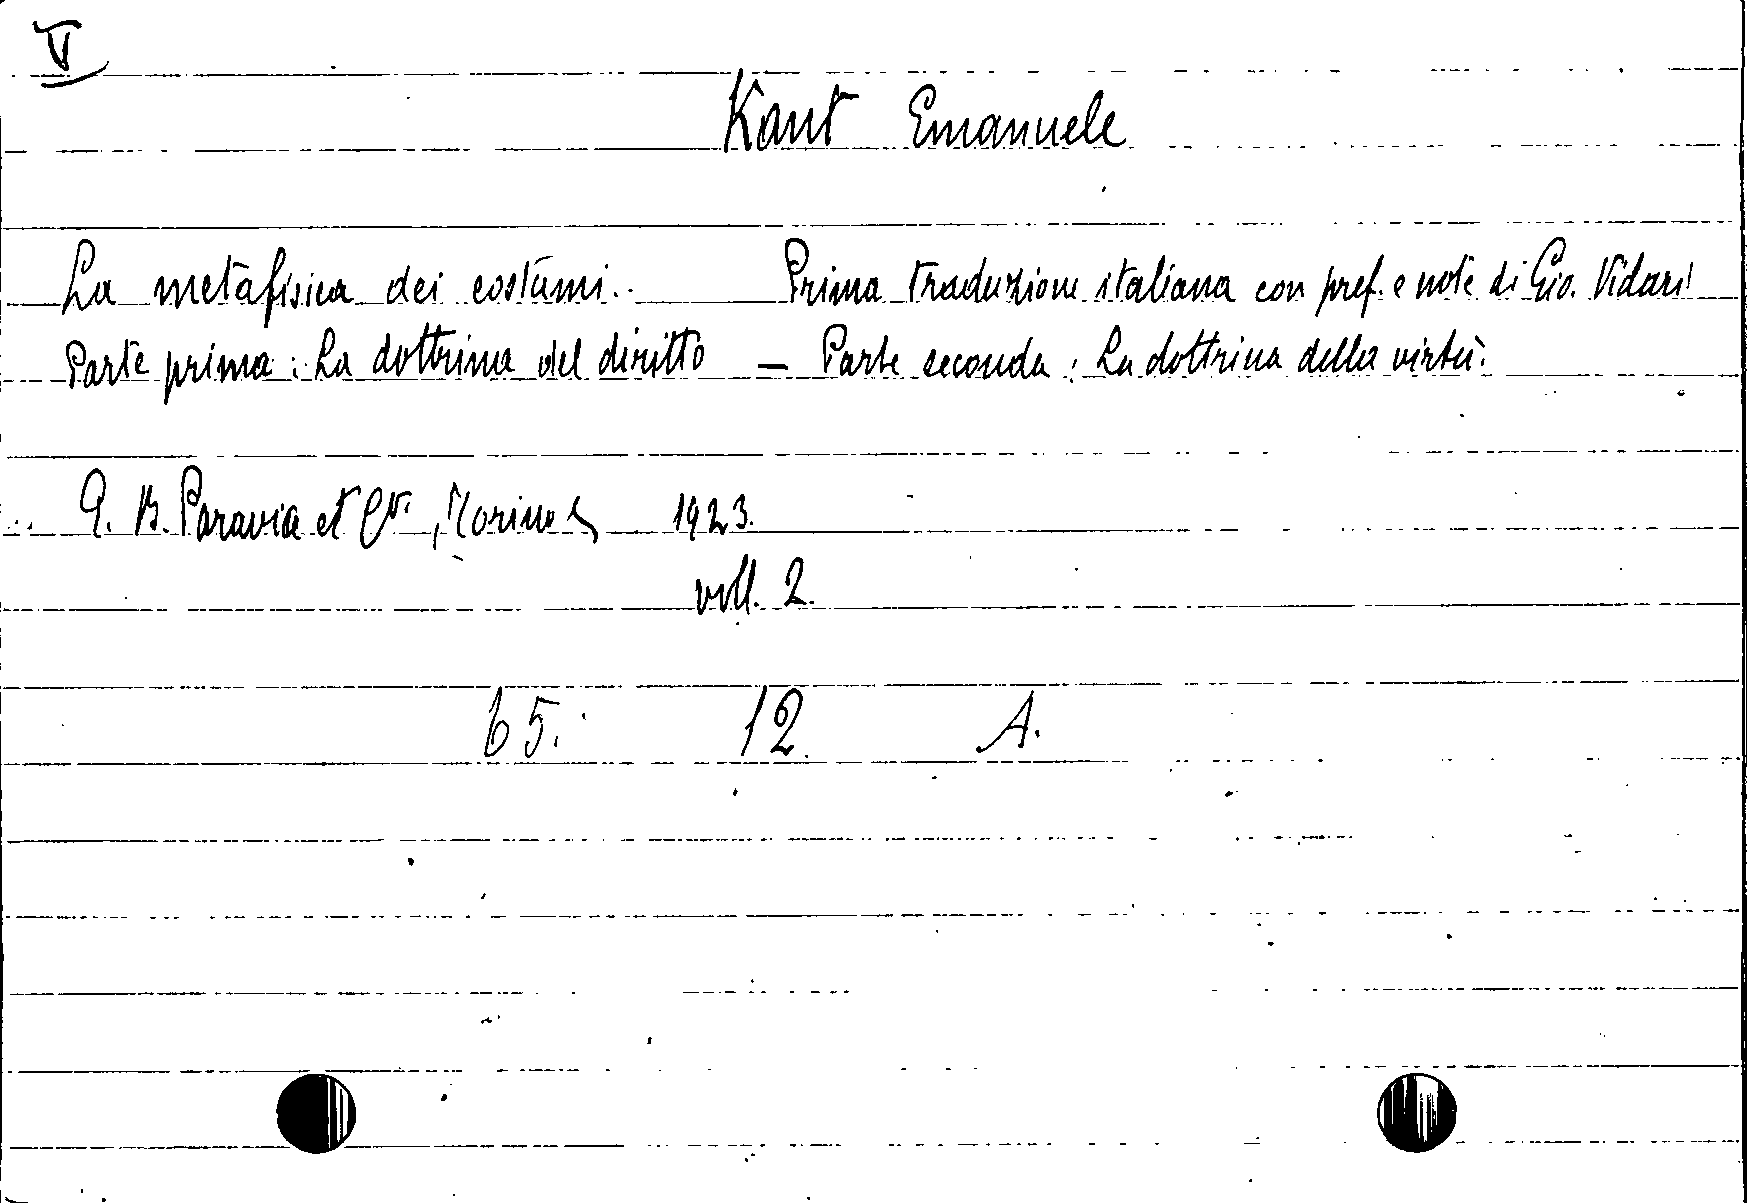 V
Kant Emanuele
La metafisica dei costumi. Prima traduzione italiana con pref. e note di Gio. Vidari
Parte prima: La dottrina del diritto — Parte seconda: La dottrina della virtù.
G. B. Paravia et Co., Torino 1923.
voll. 2.
65. 12. A.